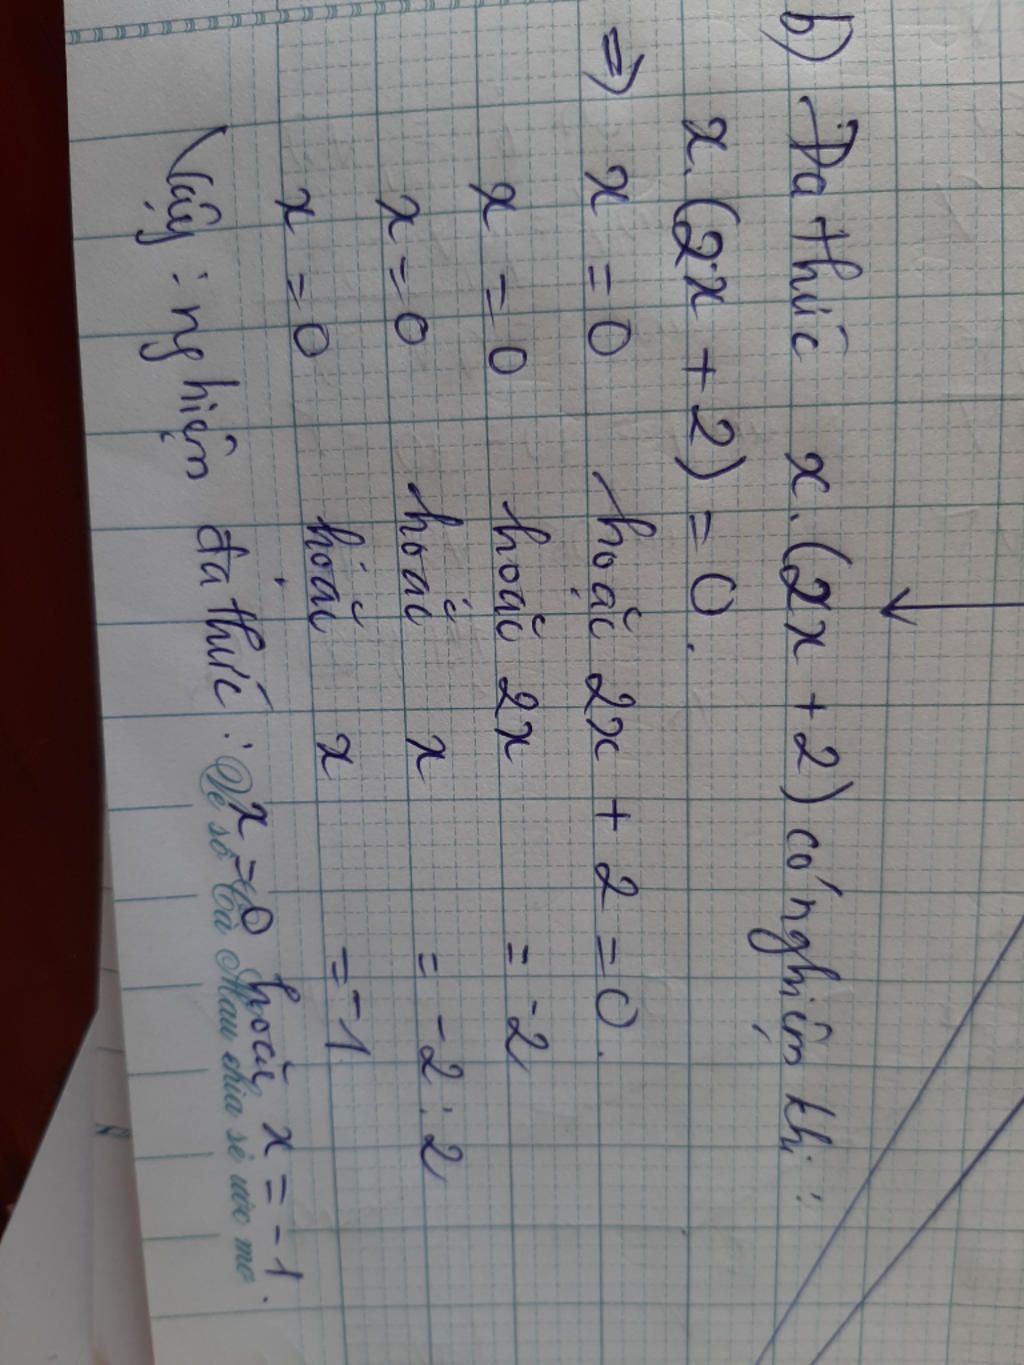 b) Đa thức x.(2x+2) có nghiệm khi:
x.(2x+2)=0.
=> x=0 hoặc 2x+2=0.
x=0 hoặc 2x=-2
x=0 hoặc x=-2:2
x=0 hoặc x=-1.
Vậy: nghiệm đa thức: x=0 hoặc x=-1.
Vé số Cà Mau chia sẻ ước mơ